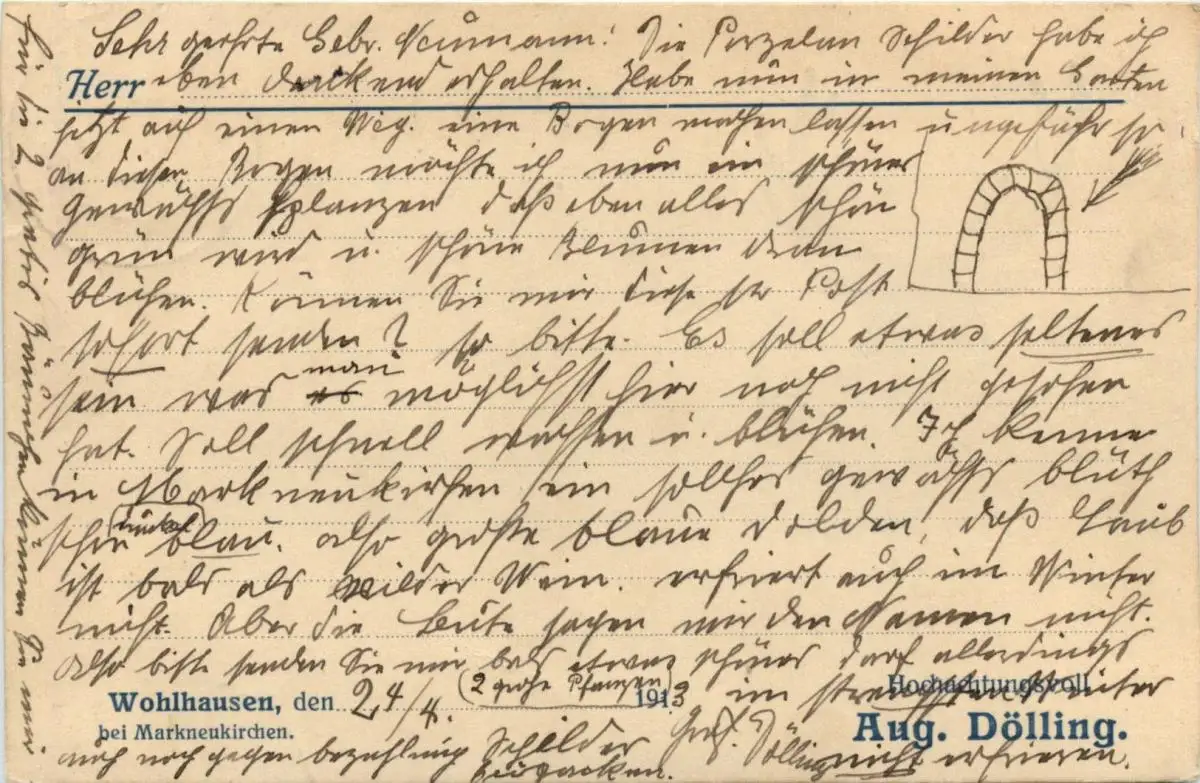 Sehr geehrte Gebr. Neumann! Die Porzelan Schilder habe ich
Herr eben dankend erhalten. Habe nun in meinen Garten
jetzt auf einen Weg. eine Bogen machen lassen ungefähr so
an diesen Bogen möchte ich nun ein schönes
Gewächs pflanzen daß eben alles schön
grün wird u. schöne Blumen dran
blühen. Können Sie mir diese per Post
sofort senden? so bitte. Es soll etwas seltenes
sein was man möglichst hier noch nicht gesehen
hat. Soll schnell wachsen u. blühen. Ich kenne
in Markneukirchen ein solches gewächs blüth
schön dunkel blau. also große blaue Dolden, daß Laub
ist bald als wilder Wein. erfriert auch im Winter
nicht. Aber die Leute sagen mir den Namen nicht.
Also bitte senden Sie mir bald etwas schönes darf allerdings
(2 große Pflanzen)
im Winter
nicht erfrieren.
Wohlhausen, den 24/4. 1913
bei Markneukirchen.
Hochachtungsvoll
Aug. Dölling.
Dölling
Für die 2 gratis Bäumchen können Sie mir
auch noch gegen bezahlung Schilder
beipacken.